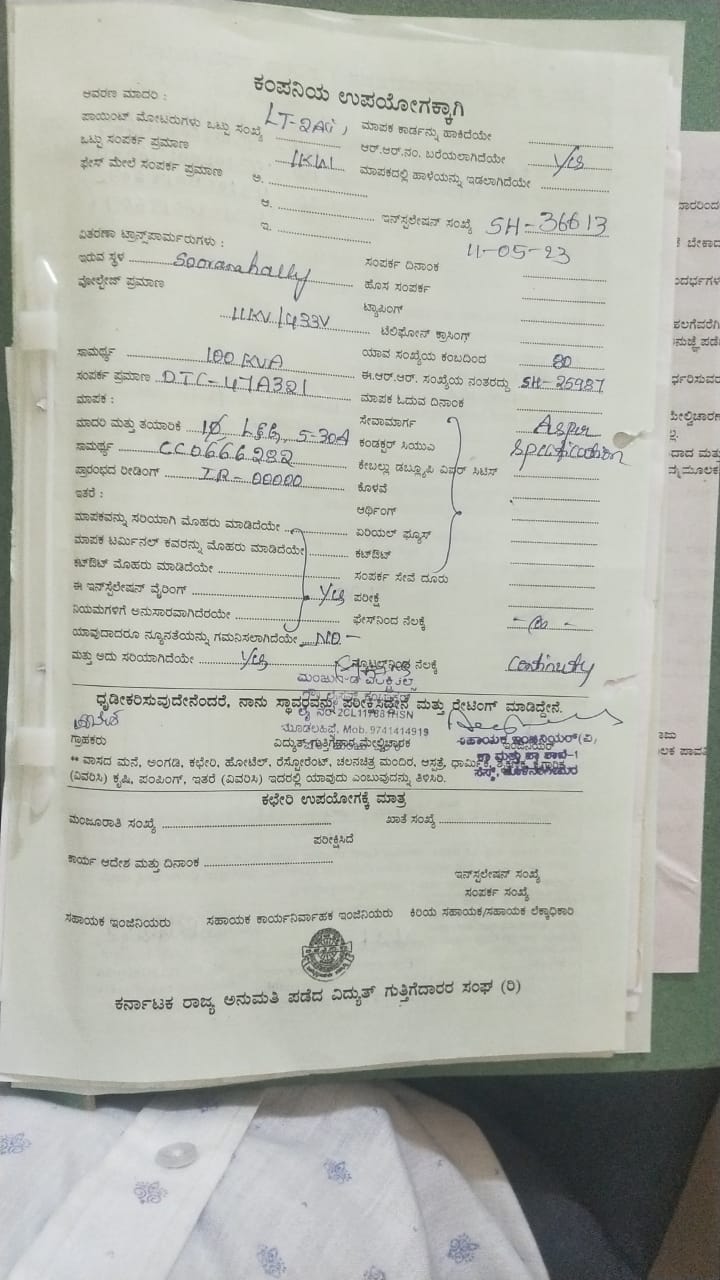 ಕಂಪನಿಯ ಉಪಯೋಗಕ್ಕಾಗಿ
ಆವರಣ ಮಾದರಿ :
ಪಾಯಿಂಟ್ ಮೋಟರುಗಳು ಒಟ್ಟು ಸಂಖ್ಯೆ LT-2A(i), ಮಾಪಕ ಕಾರ್ಡನ್ನು ಹಾಕಿದೆಯೇ
ಒಟ್ಟು ಸಂಪರ್ಕ ಪ್ರಮಾಣ 1KW ಆರ್.ಆರ್.ನಂ. ಬರೆಯಲಾಗಿದೆಯೇ Yes
ಫೇಸ್ ಮೇಲೆ ಸಂಪರ್ಕ ಪ್ರಮಾಣ ಅ. ಮಾಪಕದಲ್ಲಿ ಹಾಳೆಯನ್ನು ಇಡಲಾಗಿದೆಯೇ
ಆ.
ಇ. ಇನ್‌ಸ್ಟಲೇಷನ್ ಸಂಖ್ಯೆ SH-36613
ವಿತರಣಾ ಟ್ರಾನ್ಸ್‌ಫಾರ್ಮರುಗಳು : 11-05-23
ಇರುವ ಸ್ಥಳ Sooranahally ಸಂಪರ್ಕ ದಿನಾಂಕ
ವೋಲ್ಟೇಜ್ ಪ್ರಮಾಣ ಹೊಸ ಸಂಪರ್ಕ
11KV/433V ಟ್ಯಾಪಿಂಗ್
ಟೆಲಿಫೋನ್ ಕ್ರಾಸಿಂಗ್
ಸಾಮರ್ಥ್ಯ 100 KVA ಯಾವ ಸಂಖ್ಯೆಯ ಕಂಬದಿಂದ 80
ಸಂಪರ್ಕ ಪ್ರಮಾಣ DTC-47A321 ಈ.ಆರ್.ಆರ್. ಸಂಖ್ಯೆಯ ನಂತರದ್ದು SH-25987
ಮಾಪಕ : ಮಾಪಕ ಓದುವ ದಿನಾಂಕ
ಮಾದರಿ ಮತ್ತು ತಯಾರಿಕೆ 1Ø L&G, 5-30A ಸೇವಾಮಾರ್ಗ As per
ಸಾಮರ್ಥ್ಯ CC0666282 ಕಂಡಕ್ಟರ್ ಸಿಯುಎ specification
ಪ್ರಾರಂಭದ ರೀಡಿಂಗ್ IR-00000 ಕೇಬಲ್ಲು ಡಬ್ಲ್ಯೂಪಿ ವಿಷರ್ ಸಿಟಿಸ್
ಇತರೆ : ಕೊಳವೆ
ಆರ್ಥಿಂಗ್
ಮಾಪಕವನ್ನು ಸರಿಯಾಗಿ ಮೊಹರು ಮಾಡಿದೆಯೇ ಏರಿಯಲ್ ಫ್ಯೂಸ್
ಮಾಪಕ ಟರ್ಮಿನಲ್ ಕವರನ್ನು ಮೊಹರು ಮಾಡಿದೆಯೇ ಕಟ್‌ಔಟ್
ಕಟ್‌ಔಟ್ ಮೊಹರು ಮಾಡಿದೆಯೇ ಸಂಪರ್ಕ ಸೇವೆ ದೂರು
ಈ ಇನ್‌ಸ್ಟಲೇಷನ್ ವೈರಿಂಗ್ Yes ಪರೀಕ್ಷೆ
ನಿಯಮಗಳಿಗೆ ಅನುಸಾರವಾಗಿದೆಯೇ ಫೇಸ್‌ನಿಂದ ನೆಲಕ್ಕೆ
ಯಾವುದಾದರೂ ನ್ಯೂನತೆಯನ್ನು ಗಮನಿಸಲಾಗಿದೆಯೇ NO -
ಮತ್ತು ಅದು ಸರಿಯಾಗಿದೆಯೇ Yes ನ್ಯೂಟ್ರಲ್‌ನಿಂದ ನೆಲಕ್ಕೆ continuty
ಧೃಡೀಕರಿಸುವುದೇನೆಂದರೆ, ನಾನು ಸ್ಥಾವರವನ್ನು ಪರೀಕ್ಷಿಸಿದ್ದೇನೆ ಮತ್ತು ರೇಟಿಂಗ್ ಮಾಡಿದ್ದೇನೆ.
Mob. 9741414919
ಗ್ರಾಹಕರು ವಿದ್ಯುತ್ ಗುತ್ತಿಗೆದಾರ ಮೇಲ್ವಿಚಾರಕ ಸಹಾಯಕ ಇಂಜಿನಿಯರ್(ವಿ,
** ವಾಸದ ಮನೆ, ಅಂಗಡಿ, ಕಛೇರಿ, ಹೋಟೆಲ್, ರೆಸ್ಟೋರೆಂಟ್, ಚಲನಚಿತ್ರ ಮಂದಿರ, ಆಸ್ಪತ್ರೆ, ಧಾರ್ಮಿಕ,
(ವಿವರಿಸಿ) ಕೃಷಿ, ಪಂಪಿಂಗ್, ಇತರೆ (ವಿವರಿಸಿ) ಇದರಲ್ಲಿ ಯಾವುದು ಎಂಬುವುದನ್ನು ತಿಳಿಸಿರಿ.
ಕಛೇರಿ ಉಪಯೋಗಕ್ಕೆ ಮಾತ್ರ
ಮಂಜೂರಾತಿ ಸಂಖ್ಯೆ ಖಾತೆ ಸಂಖ್ಯೆ
ಪರೀಕ್ಷಿಸಿದೆ
ಕಾರ್ಯ ಆದೇಶ ಮತ್ತು ದಿನಾಂಕ
ಇನ್‌ಸ್ಟಲೇಷನ್ ಸಂಖ್ಯೆ
ಸಂಪರ್ಕ ಸಂಖ್ಯೆ
ಸಹಾಯಕ ಇಂಜಿನಿಯರು ಸಹಾಯಕ ಕಾರ್ಯನಿರ್ವಾಹಕ ಇಂಜಿನಿಯರು ಕಿರಿಯ ಸಹಾಯಕ/ಸಹಾಯಕ ಲೆಕ್ಕಾಧಿಕಾರಿ
ಕರ್ನಾಟಕ ರಾಜ್ಯ ಅನುಮತಿ ಪಡೆದ ವಿದ್ಯುತ್ ಗುತ್ತಿಗೆದಾರರ ಸಂಘ (ರಿ)